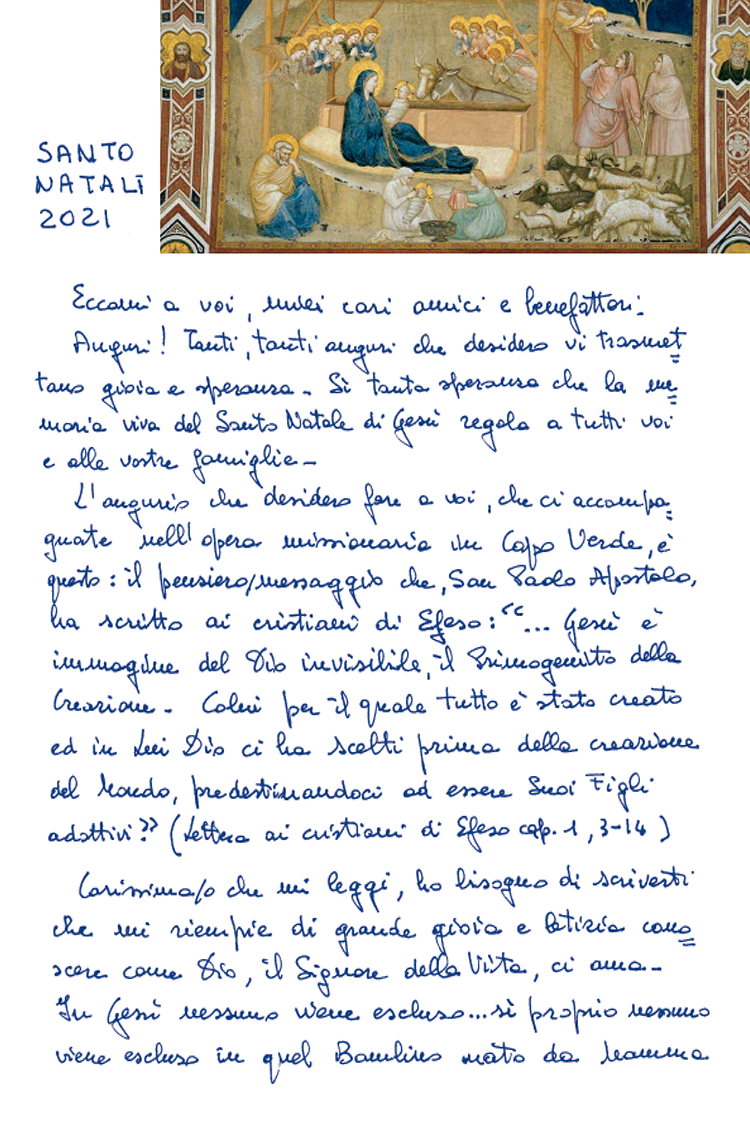 SANTO
NATALE
2021
Eccomi a voi, miei cari amici e benefattori.
Auguri! Tanti, tanti auguri che desidero vi trasmet=
tano gioia e speranza. Sì tanta speranza che la me=
moria viva del Santo Natale di Gesù regala a tutti voi
e alle vostre famiglie.
L'augurio che desidero fare a voi, che ci accompa=
gnate nell'opera missionaria in Capo Verde, è
questo: il pensiero/messaggio che, San Paolo Apostolo,
ha scritto ai cristiani di Efeso: "... Gesù è
immagine del Dio invisibile, il Primogenito della
Creazione. Colui per il quale tutto è stato creato
ed in Lui Dio ci ha scelti prima della creazione
del Mondo, predestinandoci ad essere Suoi Figli
adottivi" (Lettera ai cristiani di Efeso cap. 1, 3-14)
Carissima/o che mi leggi, ho bisogno di scriverti
che mi riempie di grande gioia e letizia cono=
scere come Dio, il Signore della Vita, ci ama.
In Gesù nessuno viene escluso... sì proprio nessuno
viene escluso in quel Bambino nato da Mamma